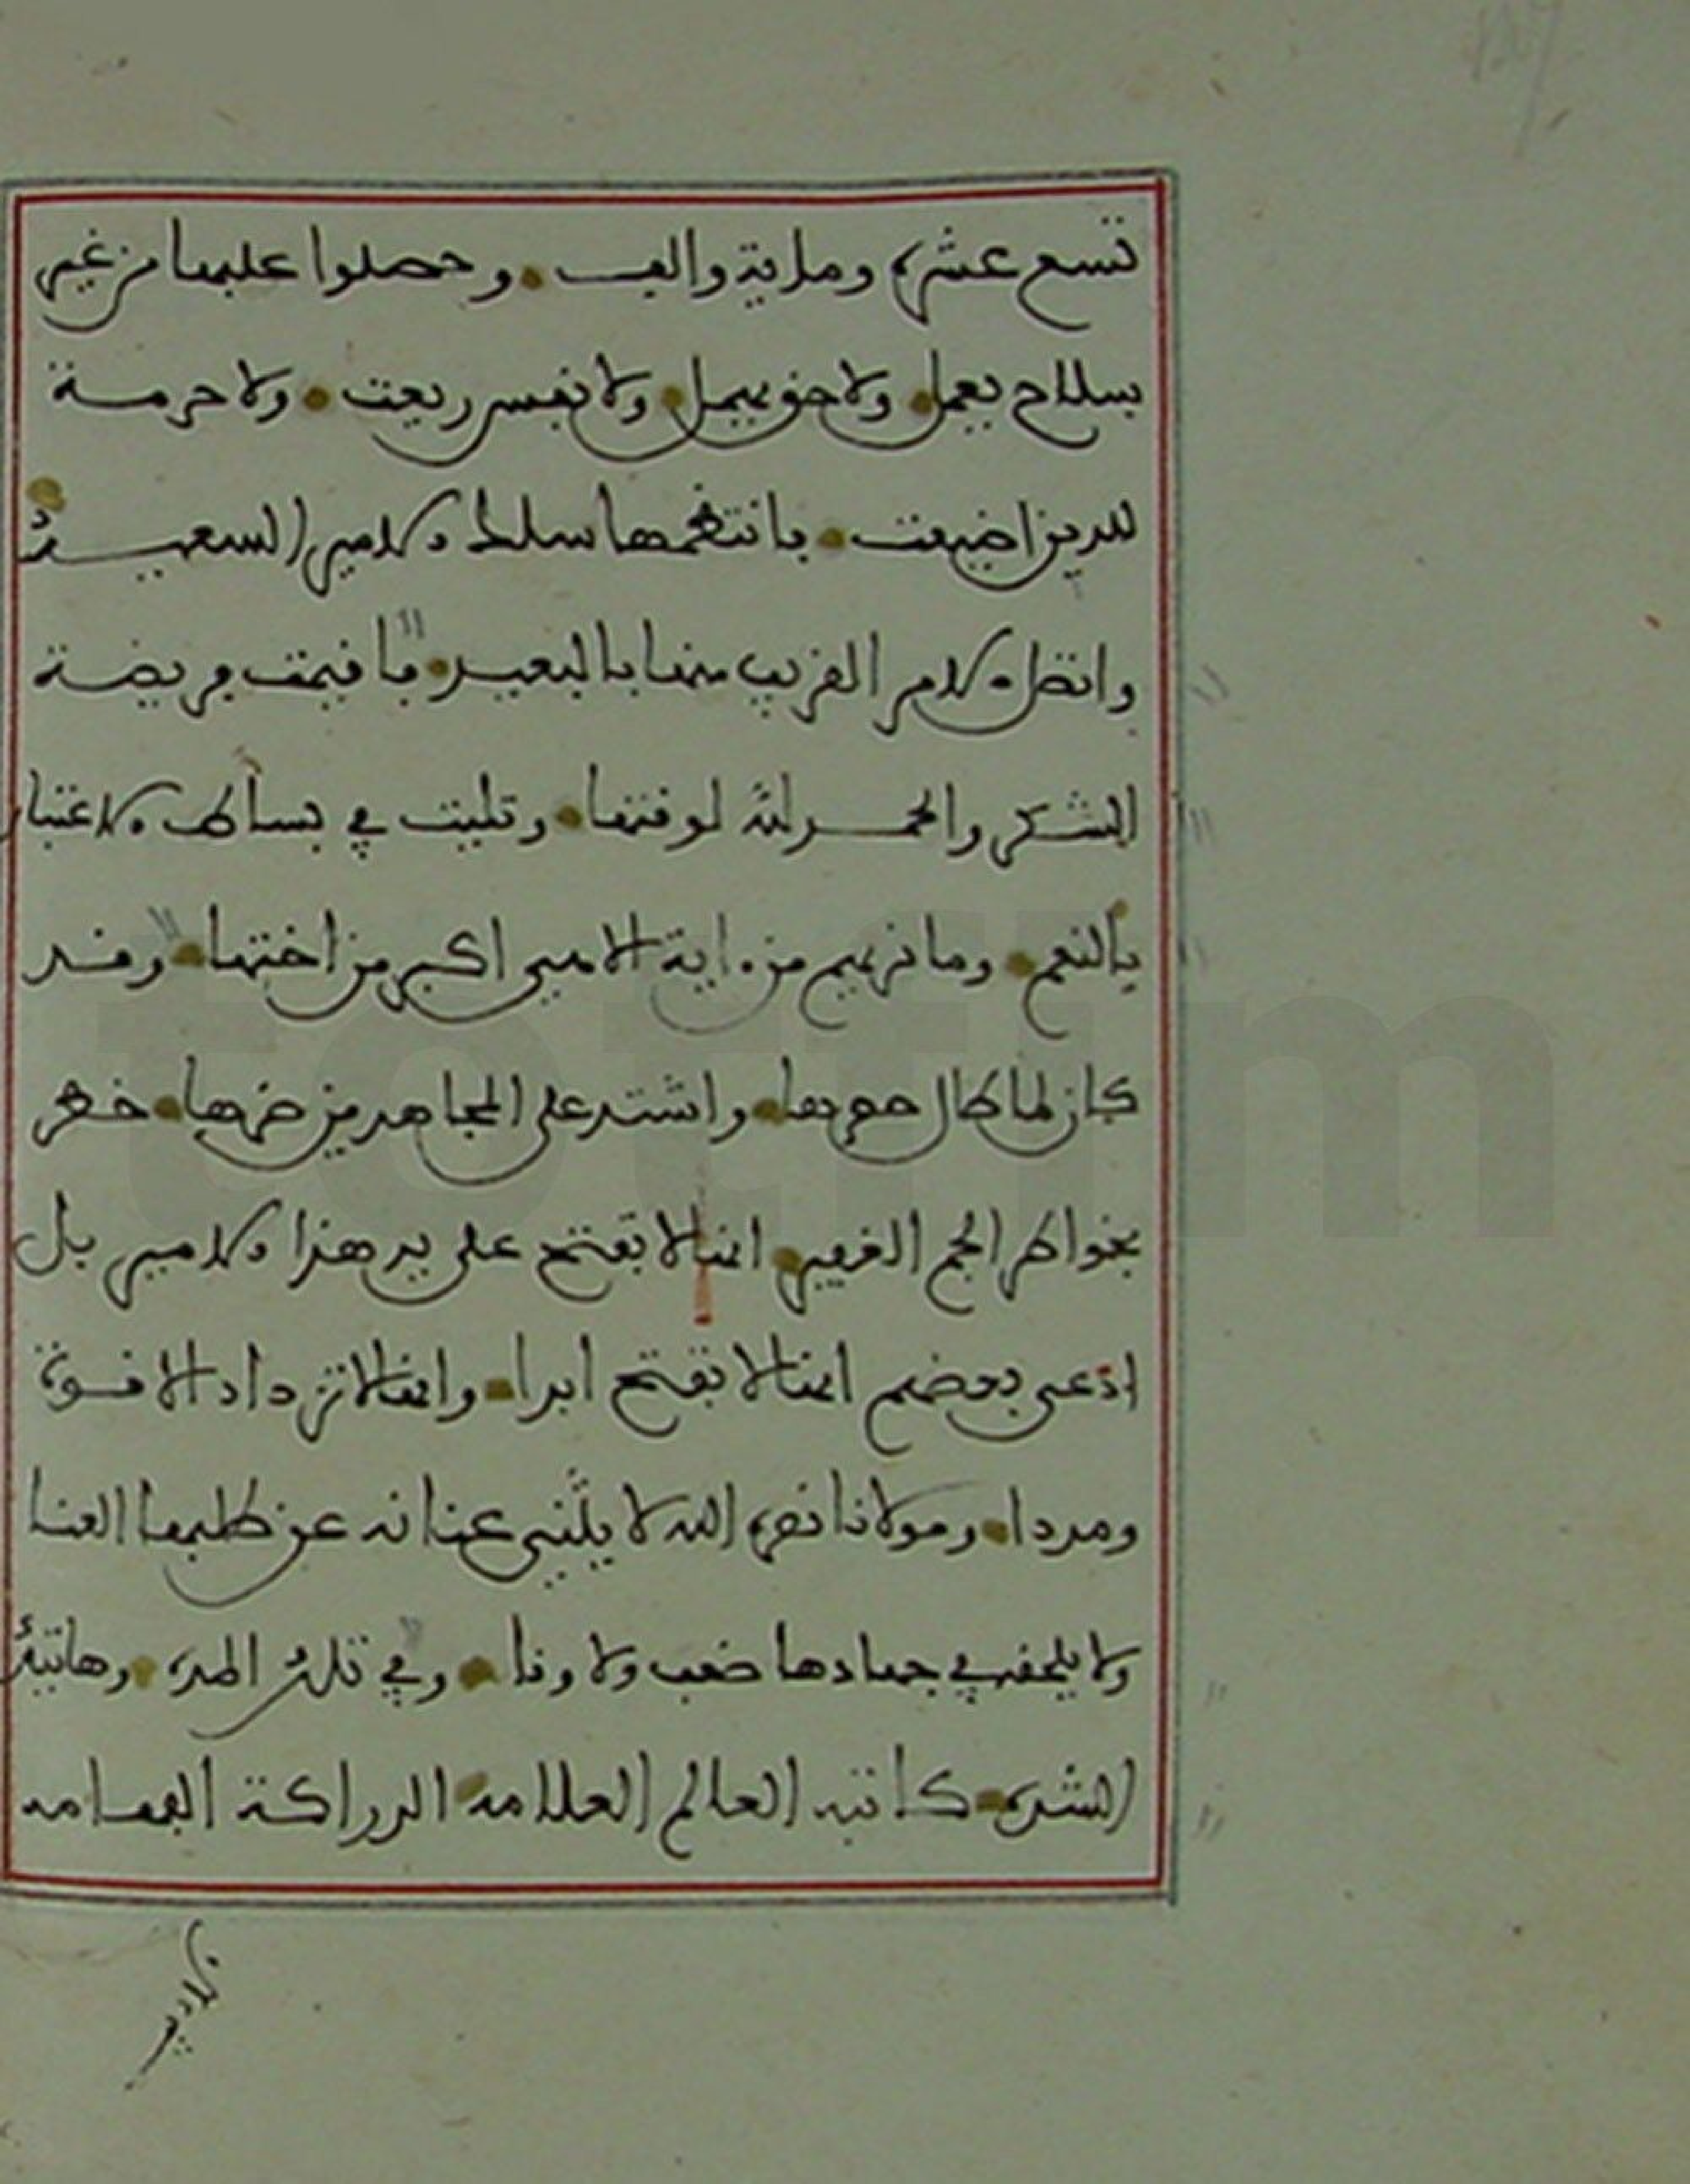 تسع عشرة ومائة والف . وحصلوا عليها من غير
بسلاح يعمل . ولا خف يحمل . ولا نفس ريعت . ولا حرمة
للدين اضيعت . فانتظمها سلط الامير السعيد
واتصل الامر القريب منها بالبعيد . فاقيمت فريضة
الشكر والحمد لله لوقتها . وتليت في بساط الاغتباط
بالنعم . وما نريهم من اية الا هي اكبر من اختها . وقد
كان لما طال حصرها . واشتد على المجاهدين ضرها . خطر
بخواطر الجم الغفير . انها لا تفتح على يد هذا الامير بل
ادعى بعضهم انها لا تفتح ابدا . وانها لا تزداد الا قوة
ومددا . ومولانا نصره الله لا يثني عنانه عن طلبها العنا
ولا يلحقه في جهادها ضعف ولا ونا . وفي تلك المدة . وهاتيك
الشدة . كاتبه العالم العلامة . الدراكة الفهامة